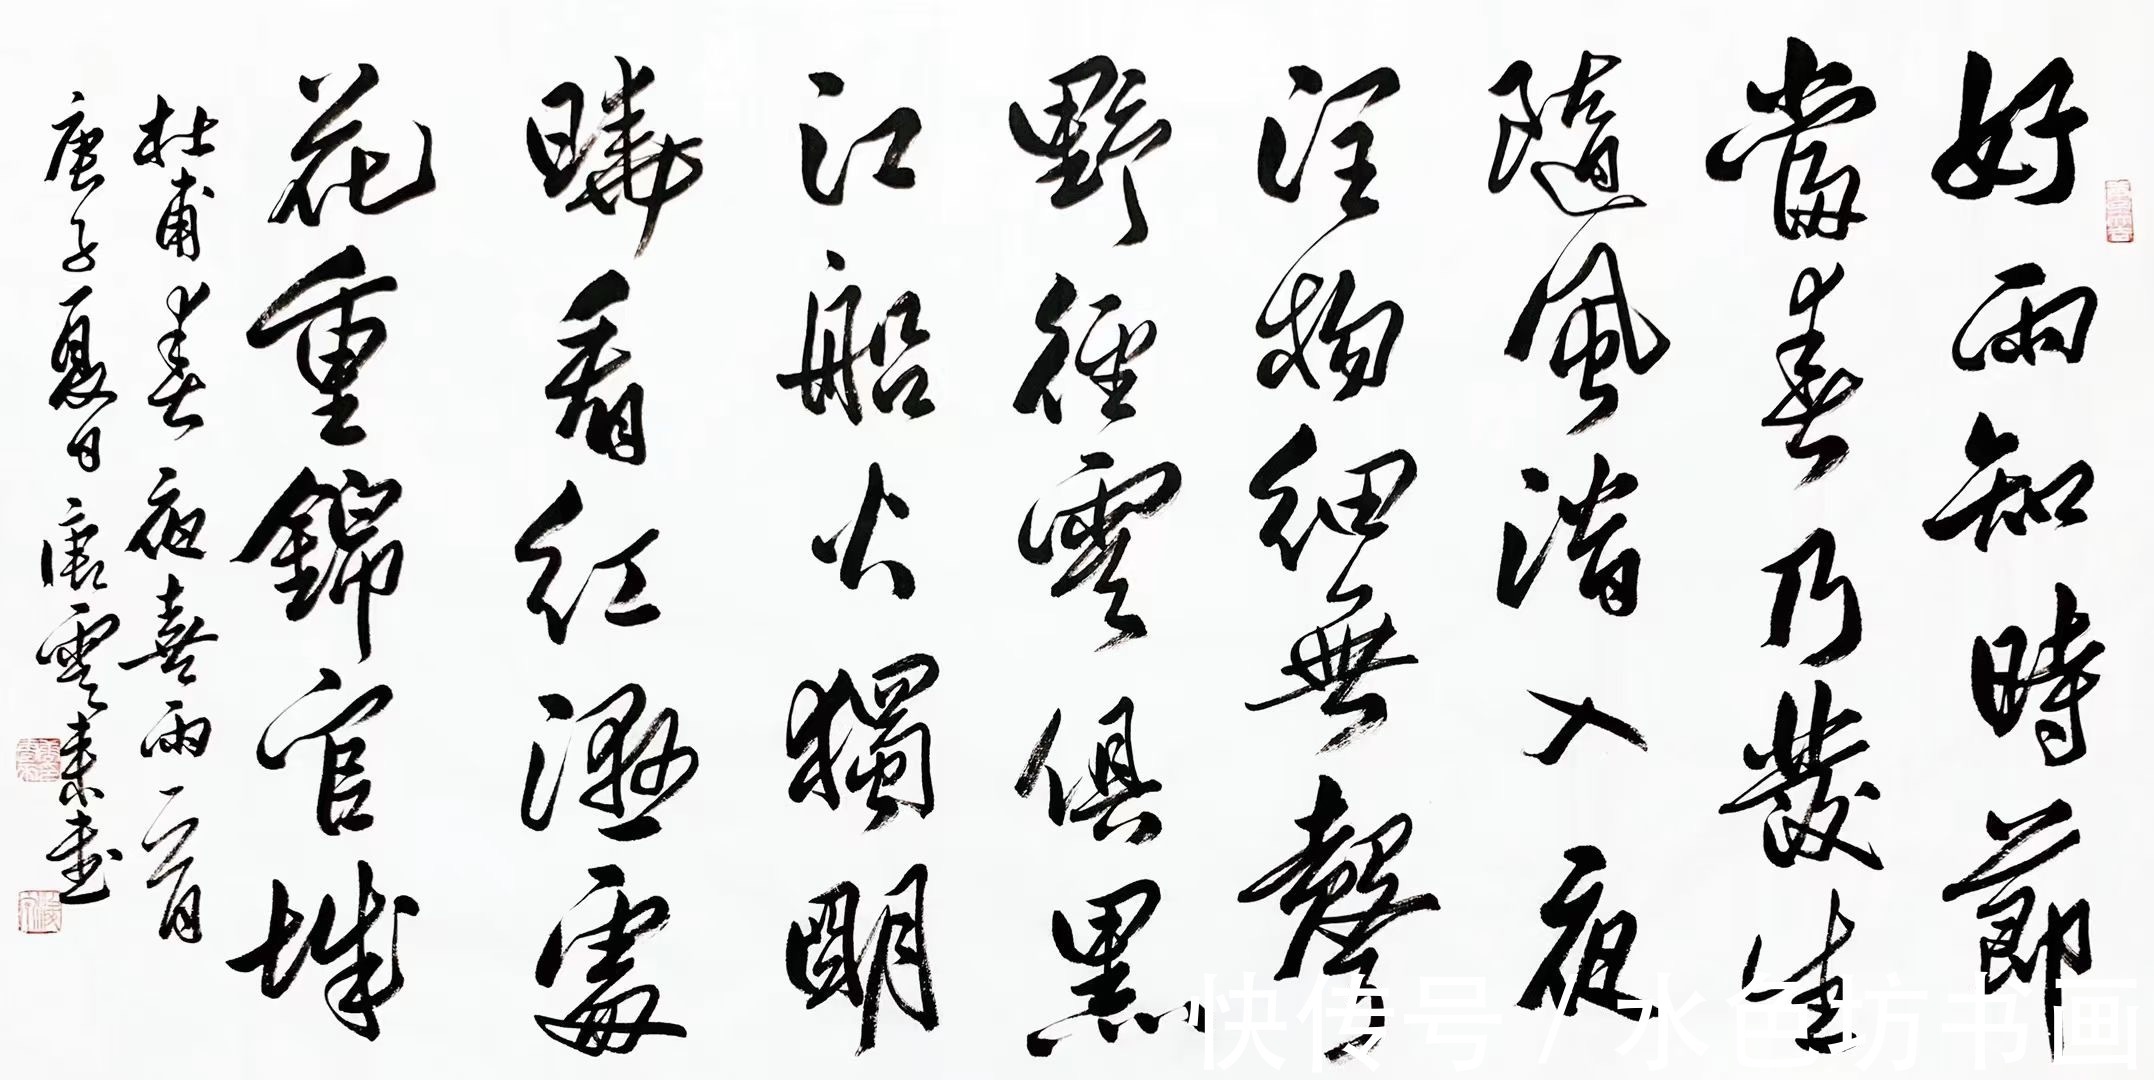 好雨知時節
當春乃發生
隨風潛入夜
潤物細無聲
野徑雲俱黑
江船火獨明
曉看紅濕處
花重錦官城
杜甫春夜喜雨一首
庚子夏日唐雲來書
快传号/水色坊书画